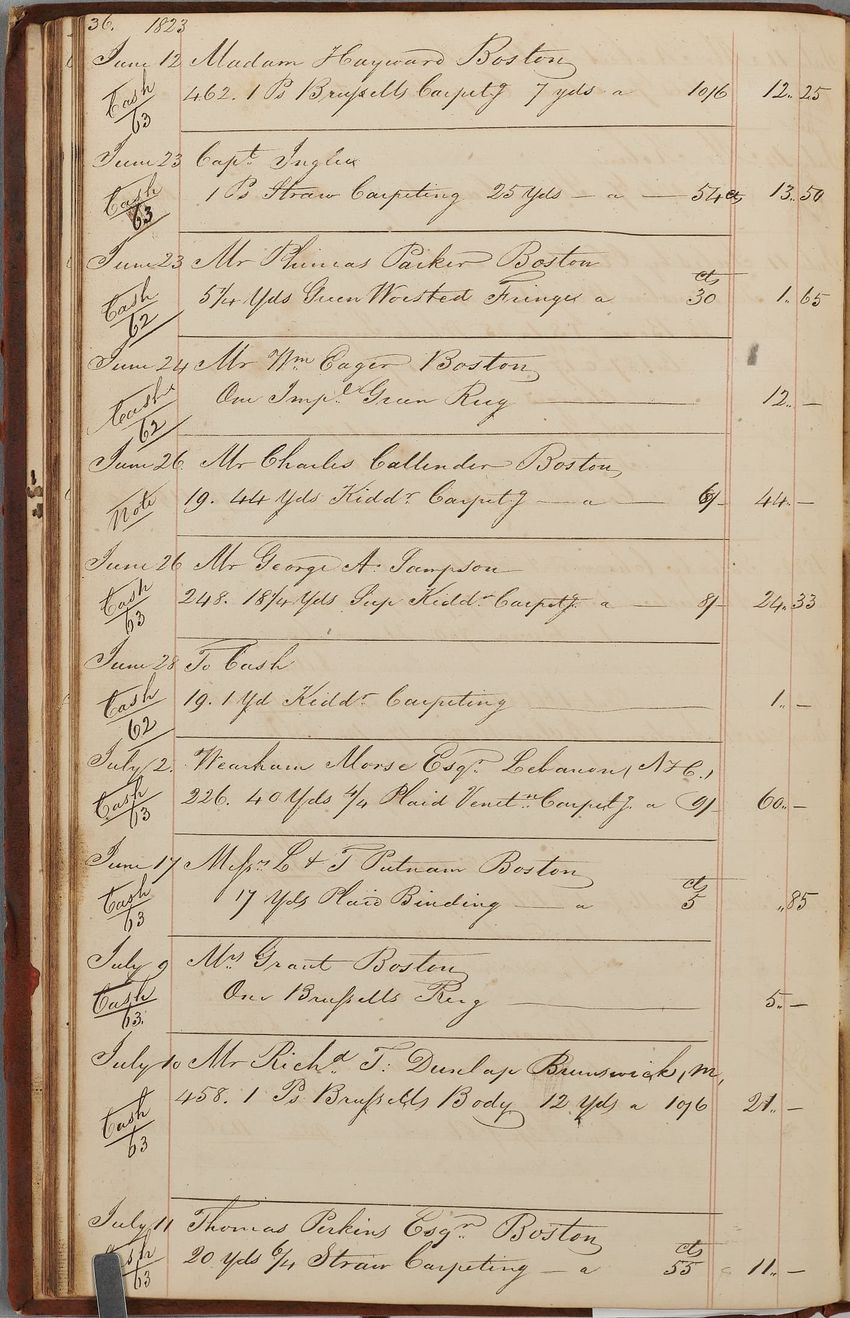 36. 1823
June 12 Madam Hayward Boston
Cash 63 462. 1 Ps Brussells Carpetg 7 yds a 10/6 12.. 25
June 23 Capt. Inglee
Cash 63 1 Ps Straw Carpeting 25 Yds — a — 54 cts 13.. 50
June 23 Mr Phineas Parker Boston
Cash 62 5 2/4 Yds Green Worsted Fringe a 30 cts 1.. 65
June 24 Mr Wm Eager Boston
Cash 62 One Impl. Green Rug 12.. —
June 26 Mr Charles Callender Boston
Note 19. 44 Yds Kiddr. Carpetg — a — 6/- 44.. —
June 26 Mr George A. Sampson
Cash 63 248. 18 1/4 Yds Sup Kiddr. Carpetg. a — 8/- 24.. 33
June 28 To Cash
Cash 62 19. 1 Yd Kiddr. Carpeting 1.. —
July 2. Wearham Morse Esqr. Lebanon, (N H C.)
Cash 63 226. 40 Yds 4/4 Plaid Venetn. Carpetg. a 9/- 60.. —
June 17 Messrs L & T Putnam Boston
Cash 63 17 Yds Plaid Binding — a 5 cts .. 85
July 9 Mrs Grant Boston
Cash 63. One Brussells Rug 5.. —
July 10 Mr Richd. T. Dunlap Brunswick, M,
Cash 63 458. 1 Ps Brussells Body 12 Yds a 10/6 21.. —
July 11 Thomas Perkins Esqr. Boston
Cash 63 20 yds 6/4 Straw Carpeting — a 55 cts 11.. —